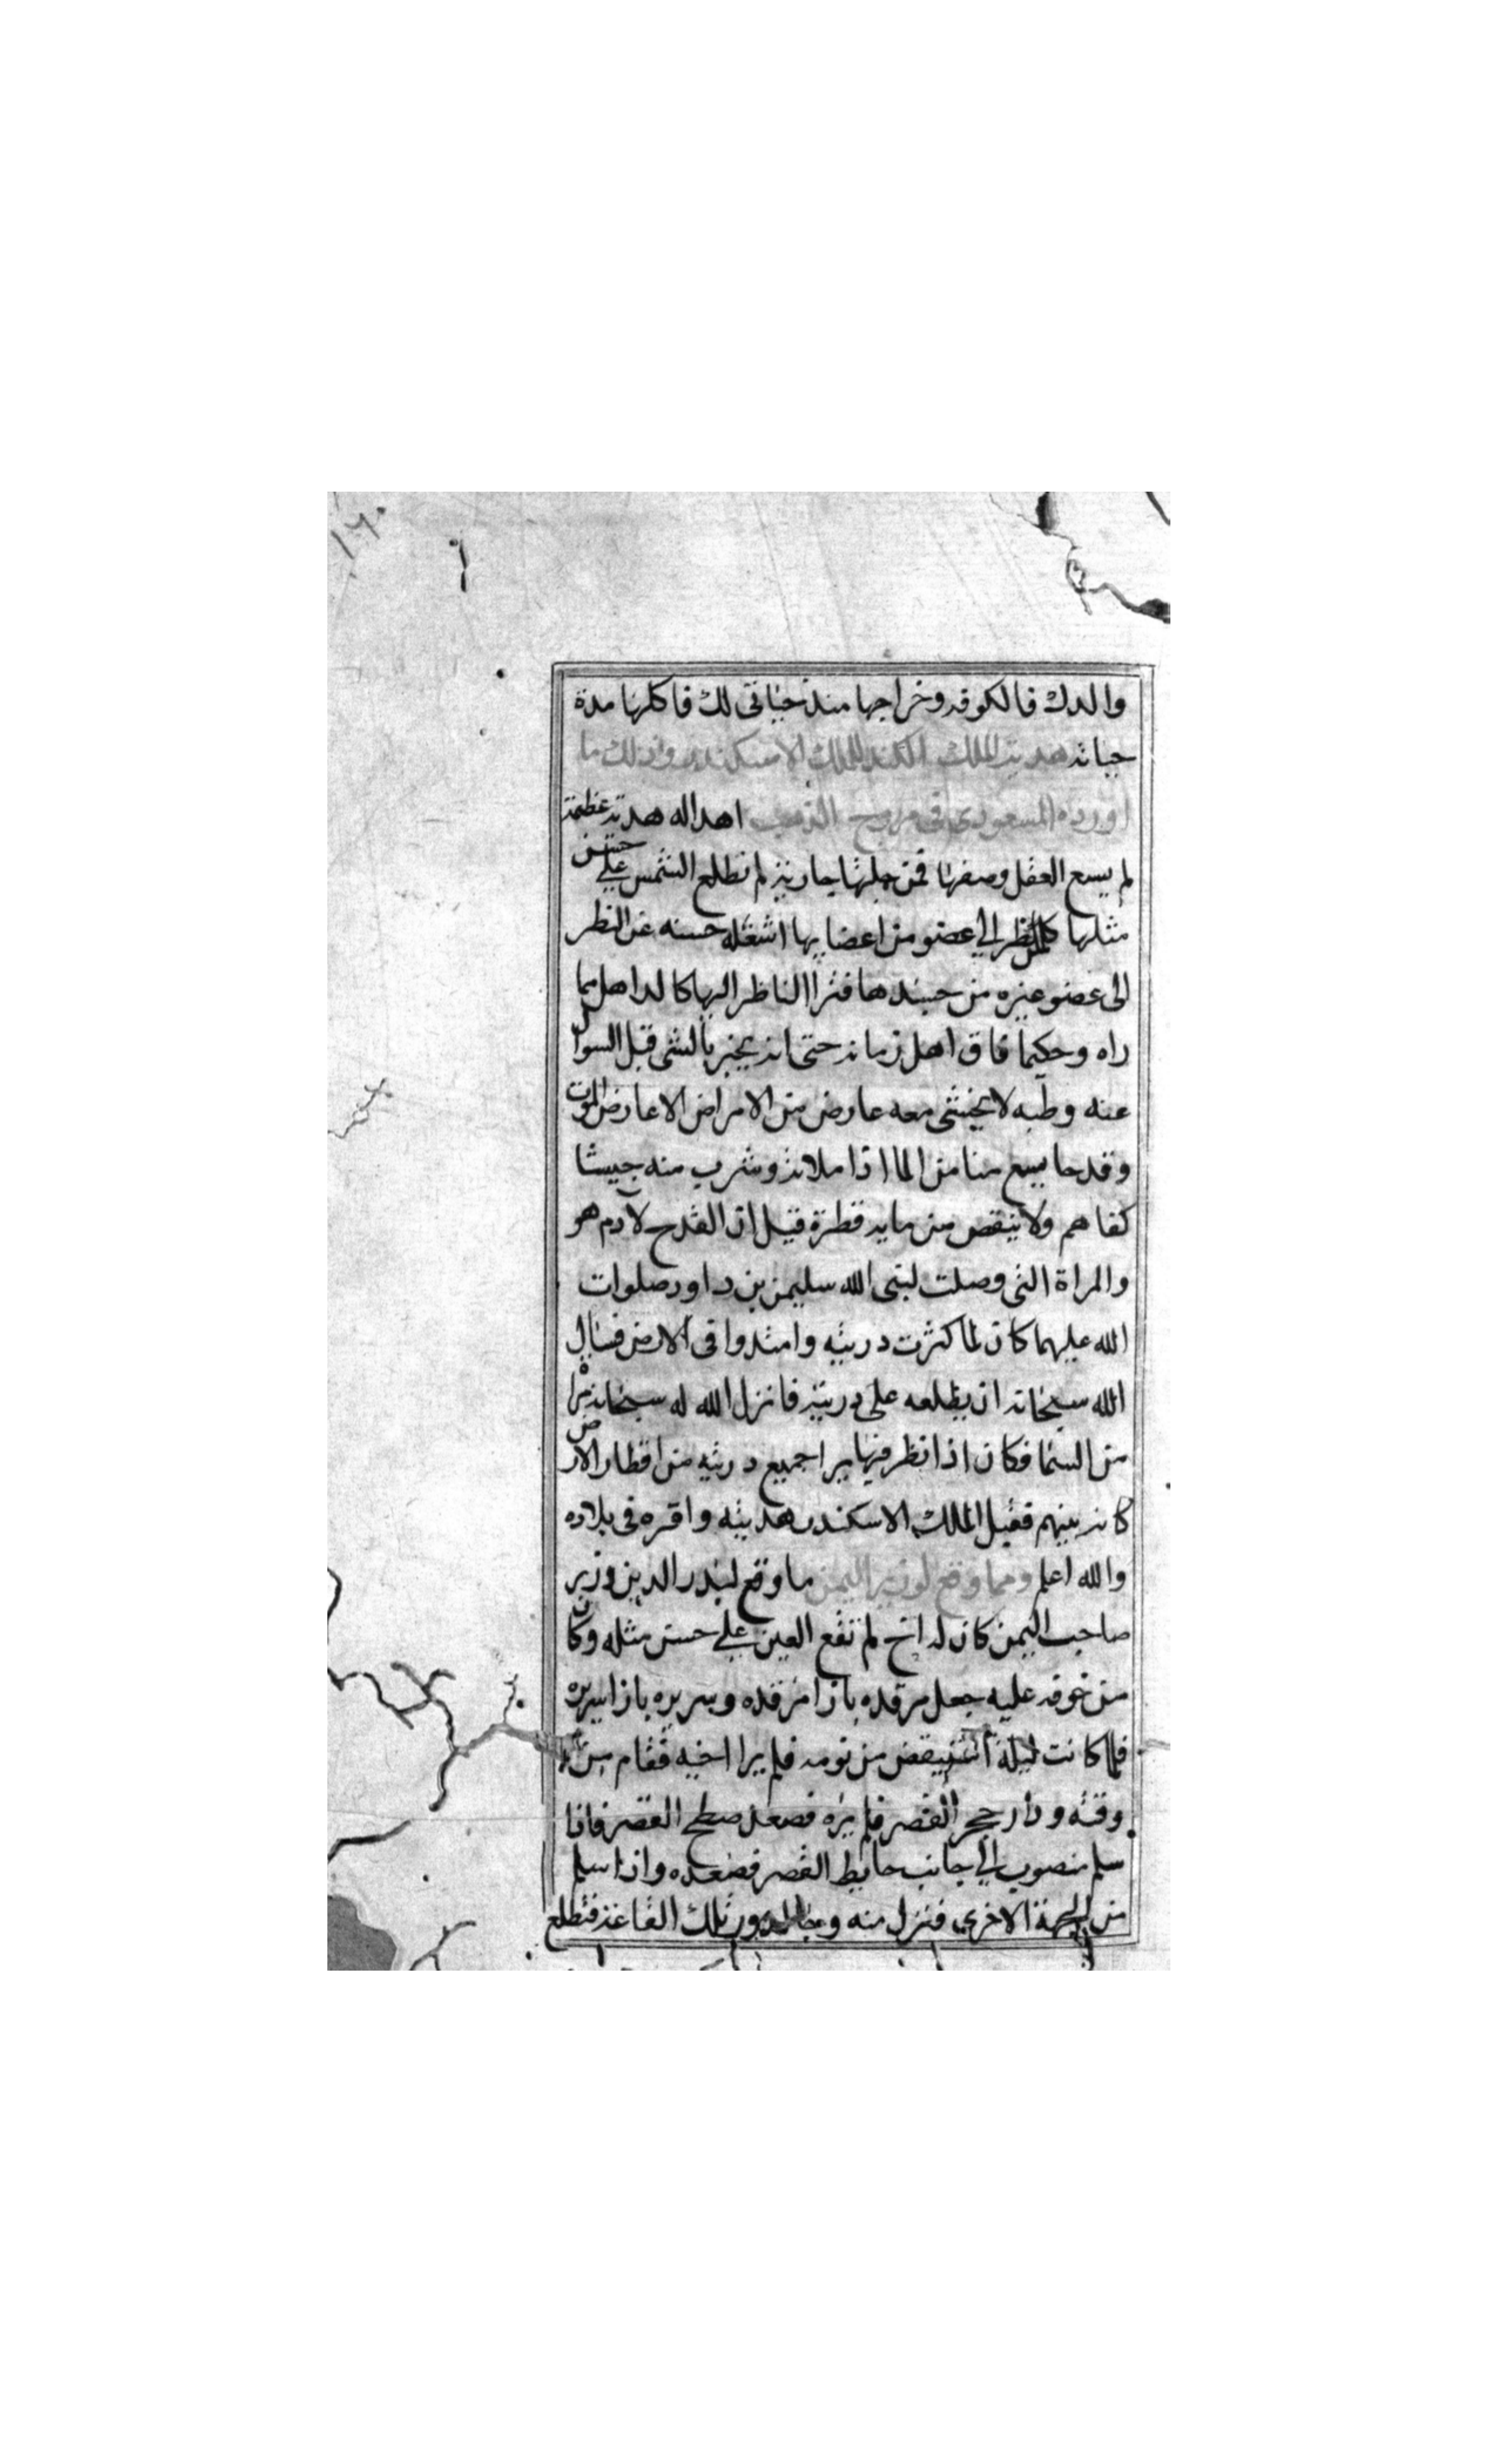 ١٦٠
والدك فالكوفه وخراجها منذ حياتى لك فاكلها مدة
حياته هدية الملك الكند للملك الاسكندر وذلك ما
اورده المسعودى فى مروج الذهب اهدا له هدية عظيمة
لم يسع العقل وصفها فمن جلتها جارية لم تطلع الشمس على حسن
مثلها كلمن نظر الى عضو من اعضايها اشغله حسنه عن النظر
الى عضو غيره من حسنها فترا الناظر اليها كالداهل مما
راه وحكيما فاق اهل زمانه حتى انه يخبر بالشى قبل السوال
عنه وطبه لا يخشى معه عارض من الامراض الا عارض الموت
وقدحا يسع منا من الما اذا ملانه وشرب منه جيشا
كفاهم ولا ينقص من مايه قطرة قيل ان القدح لادم هو
والمراة التى وصلت لنبى الله سليمن بن داود صلوات
الله عليهما كان لما كثرت دريته وامتدوا فى الارض فسال
الله سبحانه ان يطلعه على دريته فانزل الله له سبحانه مراه
من السما فكان اذا نظر فيها يرا جميع دريته من اقطار الارض
كانه بينهم فقبل الملك الاسكندر هديته واقره فى بلاده
والله اعلم ومما وقع لوزير اليمن ما وقع لبدر الدين وزير
صاحب اليمن كان له اخ لم تقع العين على حسن مثله وكان
من خوفه عليه جعل مرقده بازا مرقده وسريره بازا سريره
فلما كانت ليلة استيقض من نومه فلم يرا اخيه فقام من
وقته ودار حجر القصر فلم يره فصعد صطح القصر فاذا
سلم منصوب الى جانب حايط القصر فصعده واذا سلم
من الجهة الاخرى فنزل منه دور تلك القاعة فتطلع